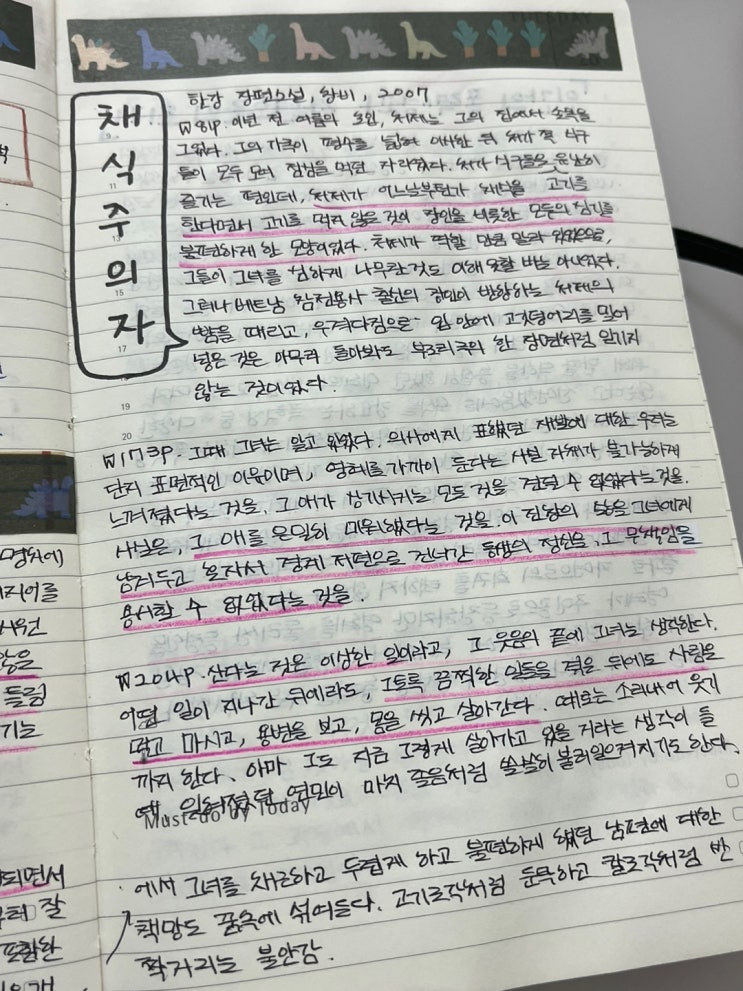 TUESDAY
채식주의자
한강 장편소설, 창비, 2007
W 81p. 이년 전 여름의 초입, 처제는 그의 집에서 손목을
그었다. 그의 가족이 평수를 넓혀 이사한 뒤 처가 쪽 식구
들이 모두 모여 점심을 먹던 자리였다. 처가 식구들은 유난히
즐기는 편인데, 처제가 어느날부턴가 채식을 고기를
한다면서 고기를 먹지 않은 것이 장인을 비롯한 모두의 심기를
불편하게 한 모양이었다. 처제가 딱할 만큼 말라 있었으므로,
그들이 그녀를 심하게 나무란 것도 이해 못할 바는 아니었다.
그러나 베트남 참전용사 출신의 장인이 반항하는 처제의
뺨을 때리고, 우격다짐으로 입 안에 고깃덩어리를 밀어
넣은 것은 아무리 돌아봐도 부조리극의 한 장면처럼 믿기지
않는 것이었다.
W 173p. 그때 그녀는 알고 있었다. 의사에게 표했던 재발에 대한 우려는
단지 표면적인 이유이며, 영혜를 가까이 둔다는 사실 자체가 불가능하게
느껴졌다는 것을. 그애가 상기시키는 모든 것을 견딜 수 없었다는 것을.
사실은, 그 애를 은밀히 미워했다는 것을. 이 진창의 삶을 그녀에게
남겨두고 혼자서 경계 저편으로 건너간 동생의 정신을, 그 무책임을
용서할 수 없었다는 것을.
W 204p. 산다는 것은 이상한 일이라고, 그 웃음의 끝에 그녀는 생각한다.
어떤 일이 지나간 뒤에라도, 그토록 끔찍한 일들을 겪은 뒤에도 사람은
먹고 마시고, 용변을 보고, 몸을 씻고 살아간다. 때로는 소리내어 웃기
까지 한다. 아마 그도 지금 그렇게 살아가고 있을 거라는 생각이 들
때, 잊혀졌던 연민이 마치 졸음처럼 쓸쓸히 불러일으켜지기도 한다.
Must do by Today
에서 그녀를 채근하고 두렵게 하고 불편하게 했던 남편에 대한
책망도 꿈속에 섞여든다. 고기조각처럼 둔묵하고 칼조각처럼 반
짝거리는 불안감.